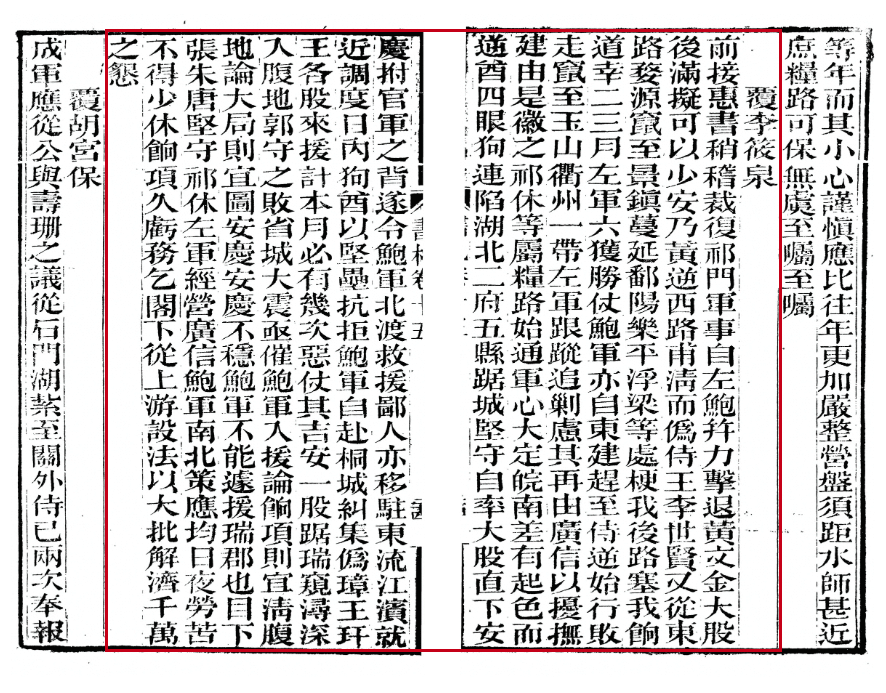 等年而其小心謹慎應比往年更加嚴整營盤須距水師甚近
庶糧路可保無虞至囑至囑
覆李筱泉
前接惠書稍稽裁復祁門軍事自左鮑幷力擊退黃文金大股
後滿擬可以少安乃黃逆西路甫淸而僞侍王李世賢又從東
路婺源竄至景鎮蔓延鄱陽樂平浮梁等處梗我後路塞我餉
道幸二三月左軍六獲勝仗鮑軍亦自東建趕至侍逆始行敗
走竄至玉山衢州一帶左軍跟蹤追剿慮其再由廣信以擾撫
建由是徽之祁休等屬糧路始通軍心大定皖南差有起色而
逆酋四眼狗連陷湖北二府五縣踞城堅守自率大股直下安
書札卷十五
慶拊官軍之背遂令鮑軍北渡救援鄙人亦移駐東流江濱就
近調度日內狗酋以堅壘抗拒鮑軍自赴桐城糾集僞璋王玕
王各股來援計本月必有幾次惡仗其吉安一股踞瑞窺潯深
入腹地郭守之敗省城大震亟催鮑軍入援論餉項則宜淸腹
地論大局則宜圖安慶安慶不穩鮑軍不能遽援瑞郡也目下
張朱唐堅守祁休左軍經營廣信鮑軍南北策應均日夜勞苦
不得少休餉項久虧務乞閣下從上游設法以大批解濟千萬
之懇
覆胡宮保
成軍應從公與壽珊之議從石門湖紮至關外侍已兩次奉報